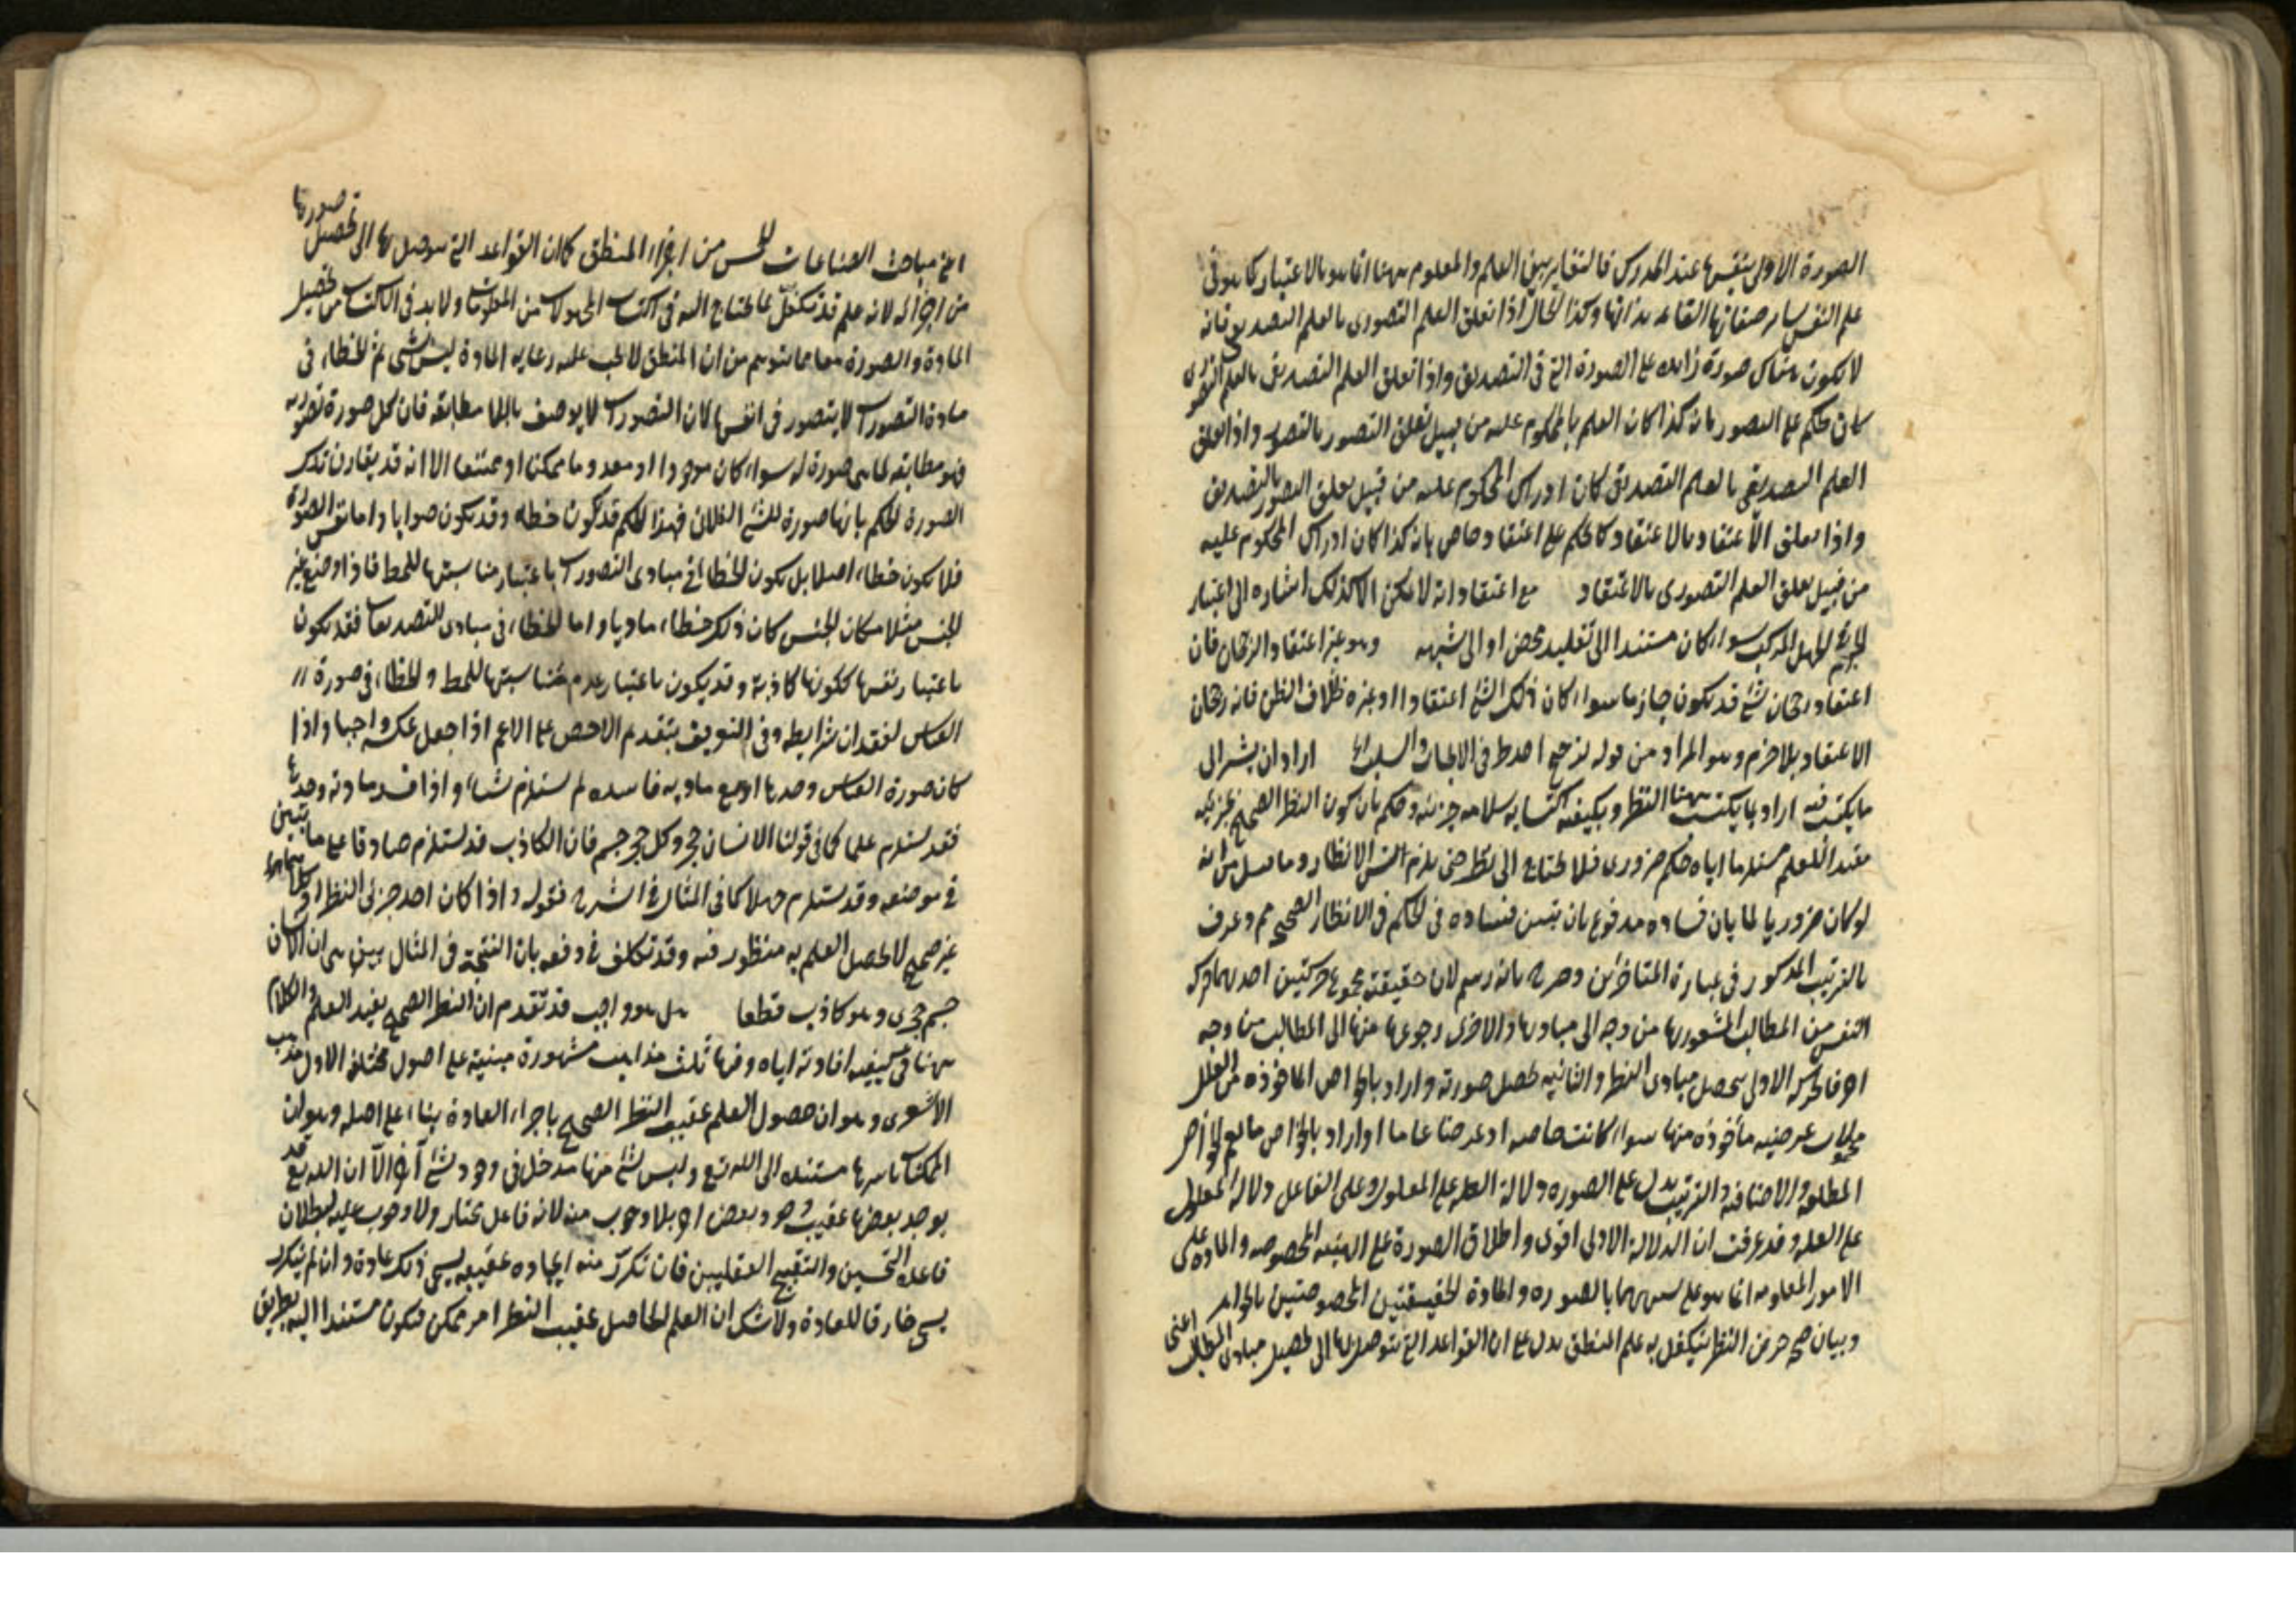 الصورة الاولى بنفسها عند المدرك فالتغاير بين العلم والمعلوم ههنا انما هو بالاعتبار كما هو في
علم النفس بسائر صفاتها القائمه بذاتها وكذا الحال اذا تعلق العلم التصورى بالعلم التصديقى فانه
لا يكون هناك صورة زائده على الصورة التى فى التصديق واذا تعلق العلم التصديقى بالعلم التصورى
كان حكم على التصور بانه كذا كان العلم بالمحكوم عليه من قبيل تعلق التصور بالتصور واذا تعلق
العلم التصديقى بالعلم التصديقى كان ادراك المحكوم عليه من قبيل تعلق التصور بالتصديق
واذا تعلق الاعتقاد بالاعتقاد كالحكم على اعتقاد خاص بانه كذا كان ادراك المحكوم عليه
من قبيل تعلق العلم التصورى بالاعتقاد مع اعتقاد انه لا يمكن الا كذلك اشاره الى اعتبار
الجزم الجهل المركب سواء كان مستندا الى تقليد محض او الى شبهه وهو غير اعتقاد الرجحان فان
اعتقاد رجحان شئ قد يكون جازما سواء كان ذلك الشئ اعتقادا او غيره بخلاف الظن فانه رجحان
الاعتقاد بلا جزم وهو المراد من قوله ترجح احد طرفى الايجاب والسلب اراد ان يشير الى
ما يكتب فيه اراد بما يكتب ههنا النظر وبكيفيه اكتسابه سلامه جزئيه وحكم بان كون النظر الصحيح بجزئيه
مفيدا للعلم مستلزما اياه حكم ضرورى فلا يحتاج الى نظر حتى يلزم التس الانظار وما قيل من انه
لو كان ضروريا لما بان فساده مدفوع بان تبين فساده فى الحكم فى الانظار الصحيح مم وعرف
بالترتيب المذكور فى عبارة المتاخرين وصرح بانه رسم لان حقيقته مجموع حركتين احديهما حركه
النفس من المطالب المشعور بها من وجه الى مباديها والاخرى رجوعها منها الى المطالب من وجه
اخر فالحركه الاولى تحصل مبادى النظر والثانيه تحصل صورته واراد بالخواص الماخوذه من العلل
محمولات عرضيه مأخوذه منها سواء كانت خاصه او عرضا عاما او اراد بالخواص ما يعم الخواص
المطلقه والاضافيه والترتيب يدل على الصوره دلالة العله على المعلول وعلى الفاعل دلالة المعلول
على العله وقد عرفت ان الدلالة الاولى اقوى واطلاق الصورة على الهيئه المخصوصه والماده على
الامور المعلومه انما هو على تشبيهها بالصوره والمادة الحقيقتين المخصوصتين بالجواهر
وبيان صحه جزئى النظر يتكفل به علم المنطق يدل على ان القواعد التى يتوصل بها الى تحصيل مبادى المطالب اعنى
اعنى مباحث الصناعات الخمس من اجزاء المنطق كما ان القواعد التى يتوصل بها الى تحصيل صورتها
من اجزائه لانه علم قد تكفل بما يحتاج اليه فى اكتساب المجهولات من المعلومات ولا بد فى الاكتساب من تحصيل
المادة والصورة معا فما يتوهم من ان المنطق لا يجب عليه رعايه المادة ليس بشى ثم الخطاء فى
مادة التصورات لا يتصور فى انفسها لان التصورات لا يوصف باللا مطابقه فان كل صورة تصوريه
فهو مطابقه لما هى صورة له سواء كان موجودا او معدوما ممكنا او ممتنعا الا انه قد يقارن تلك
الصورة الحكم بانها صورة للشئ الفلانى فهذا الحكم قد يكون خطاء وقد يكون صوابا واما نفس الصورة
فلا يكون خطاء اصلا بل يكون الخطاء فى مبادى التصورات باعتبار مناسبتها للمط فاذا وضع غير
الجنس مثلا مكان الجنس كان ذلك خطاء ماديا واما الخطاء فى مبادى التصديقات فقد يكون
باعتبار نفسها ككونها كاذبة وقد يكون باعتبار عدم مناسبتها للمط والخطاء فى صورة
القياس لفقدان شرايطه وفى التعريف بتقديم الاخص على الاعم اذا جعل عكسه واجبا واذا
كان صورة القياس وحدها او مع ماديه فاسده لم يستلزم شيئا واذا فسد مادته وحدها
فقد يستلزم علما كما فى قولنا الانسان حجر وكل حجر جسم فان الكاذب قد يستلزم صادقا على ما تبين
فى موضعه وقد يستلزم جهلا كما فى المثال فى الشرح فقوله واذا كان احد جزئى النظر او كلاهما
غير صحيح لا يحصل العلم به منظور فيه وقد تكلف فى دفعه بان النتيجة فى المثال هى ان الانسان
جسم حجرى وهو كاذب قطعا بل هو واجب قد تقدم ان النظر الصحيح يفيد العلم والكلام
ههنا فى كيفيه افادته اياه وفيها ثلث مذاهب مشهورة مبنية على اصول مختلفه الاول مذهب
الاشعرى وهو ان حصول العلم عقيب النظر الصحيح باجراء العادة بناء على اصله وهو ان
الممكنات باسرها مستنده الى الله تع وليس لشئ منها مدخل فى وجود شئ آخر الا ان الله تع قد
يوجد بعضها عقيب وجود بعض اخر بلا وجوب منه لانه فاعل مختار ولا وجوب عليه لبطلان
قاعده التحسين والتقبيح العقليين فان تكرر منه ايجاده عقيبه يسمى ذلك عادة وان لم يتكرر
يسمى خارقا للعادة ولا شك ان العلم الحاصل عقيب النظر امر ممكن فيكون مستندا اليه بطريق